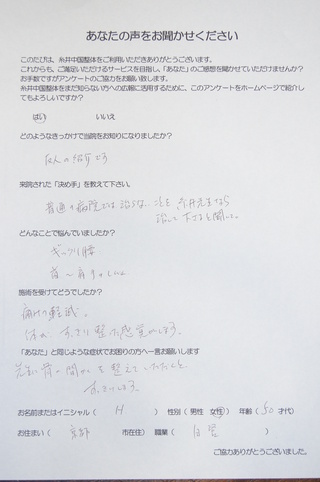 あなたの声をお聞かせください
このたびは、糸井中国整体をご利用いただきありがとうございます。
これからも、ご満足いただけるサービスを目指し、「あなた」のご感想を聞かせていただけませんか?
お手数ですがアンケートのご協力をお願い致します。
糸井中国整体をまだ知らない方への広報に活用するために、このアンケートをホームページで紹介し
てもよろしいですか?
はい いいえ
どのようなきっかけで当院をお知りになりましたか?
友人の紹介です
来院された「決め手」を教えて下さい。
普通の病院では治らない
治して下さると聞いて。
どんなことで悩んでいましたか?
ギックリ腰
首〜肩
施術を受けてどうでしたか?
痛みの軽減。
すっきり整った感覚があります。
「あなた」と同じような症状でお困りの方へ一言お願いします
骨の間から整えていただくと
すっきりします。
お名前またはイニシャル( H ) 性別(男性 女性) 年齢(50 才代)
お住まい( 京都 市在住) 職業( 自営 )
ご協力ありがとうございました。